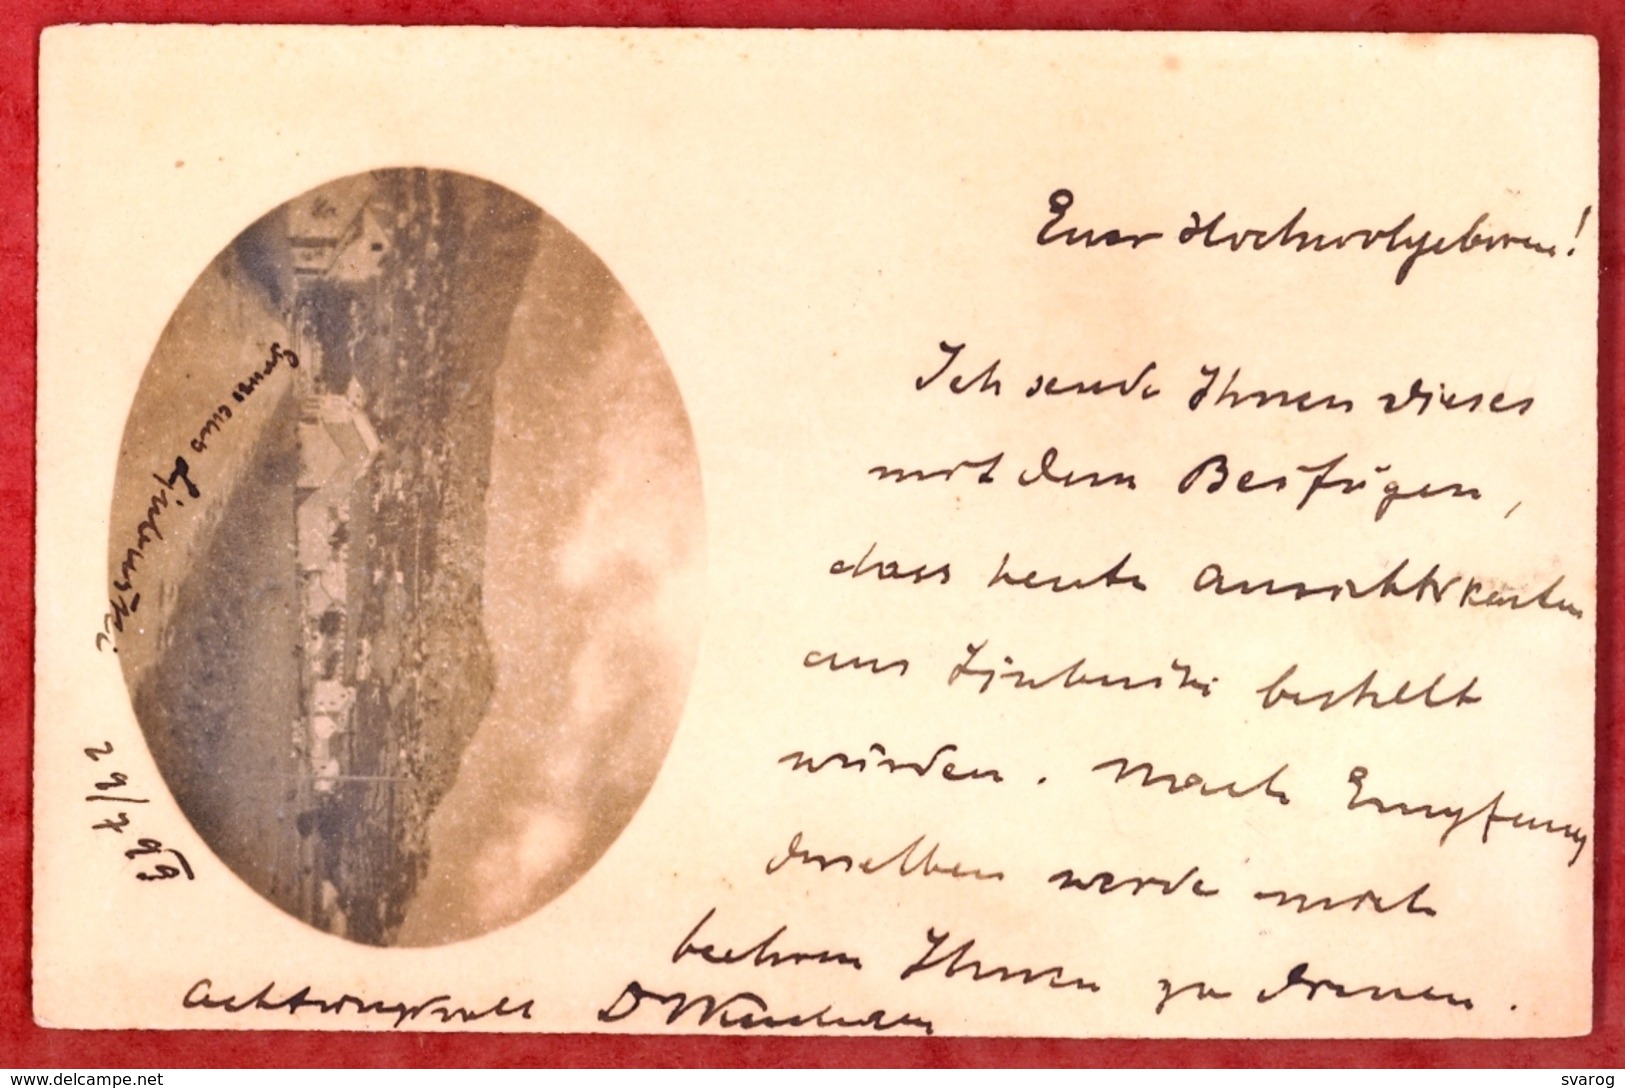 Euer Hochwolgeboren!
Ich sende Ihnen dieses
mit dem Beifügen,
dass heute Ansichtskarten
aus Ljubuški bestellt
würden. Nach Empfang
derselben werde mich
beehren Ihnen zu dienen.
Achtungsvoll
Gruss aus Ljubuški
29/7
www.delcampe.net
svarog